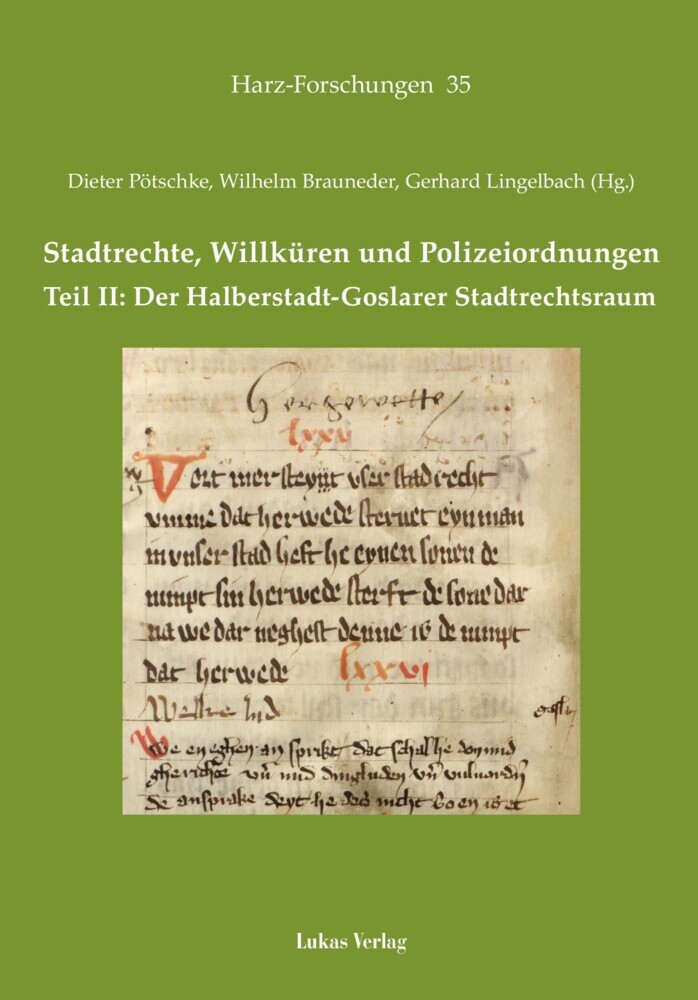 Harz-Forschungen 35
Dieter Pötschke, Wilhelm Brauneder, Gerhard Lingelbach (Hg.)
Stadtrechte, Willküren und Polizeiordnungen
Teil II: Der Halberstadt-Goslarer Stadtrechtsraum
Hergewette
lxxv
Vort mer steyt vser stad recht
vmme dat herwede steruet eyn man
in vnser stad heft he eynen sonen de
nimpt sin herwede sterft de sone dar
na we dar neghest denne is de nimpt
dat herwede lxxvi
We en eghen an sprikt dat schal he don mid
gherichte vn mid dingluden vn
de ansprake deyt he des nicht so en is et
Lukas Verlag